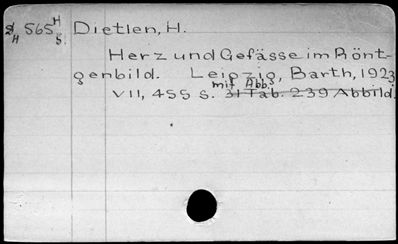 565 H Dietlen, H.
H S.
Herz und Gefässe im Rönt-
genbild. Leipzig, Barth, 1923
mit Abb.
VII, 455 S. 31 Tab. 239 Abbild.